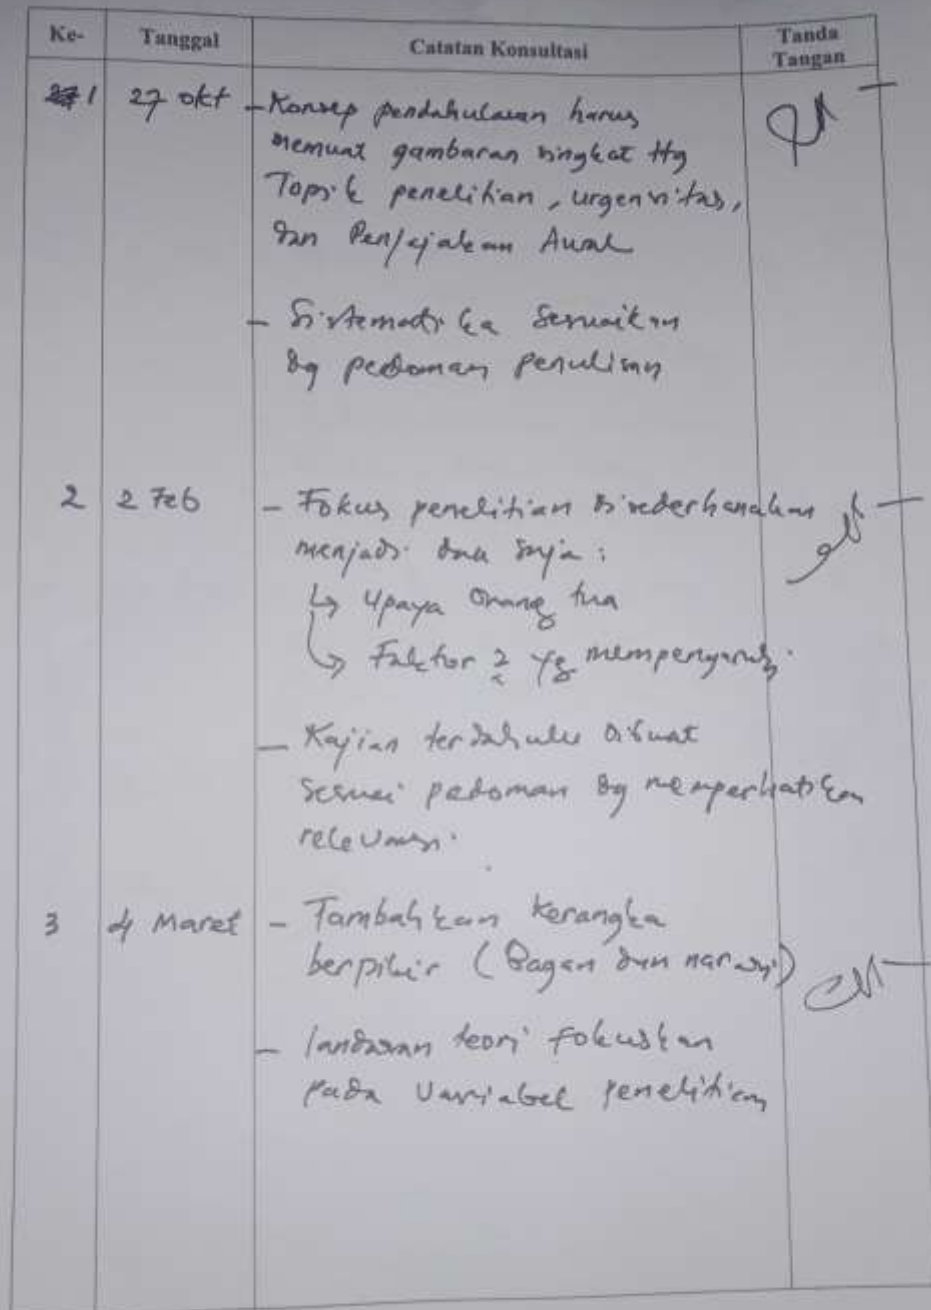 Ke- Tanggal Catatan Konsultasi Tanda Tangan
1 27 okt - Konsep pendahuluan harus
memuat gambaran singkat ttg
Topik penelitian, urgensitas,
dan Penjajakan Awal
- Sistematika Sesuaikan
dg pedoman penulisan
2 2 Feb - Fokus penelitian disederhanakan
menjadi dua saja:
↳ Upaya Orang tua
↳ Faktor2 yg mempengaruhi.
- Kajian terdahulu dibuat
sesuai pedoman dg memperhatikan
relevansi.
3 4 Maret - Tambahkan Kerangka
berpikir (Bagan dan narasi)
- landasan teori fokuskan
pada Variabel penelitian